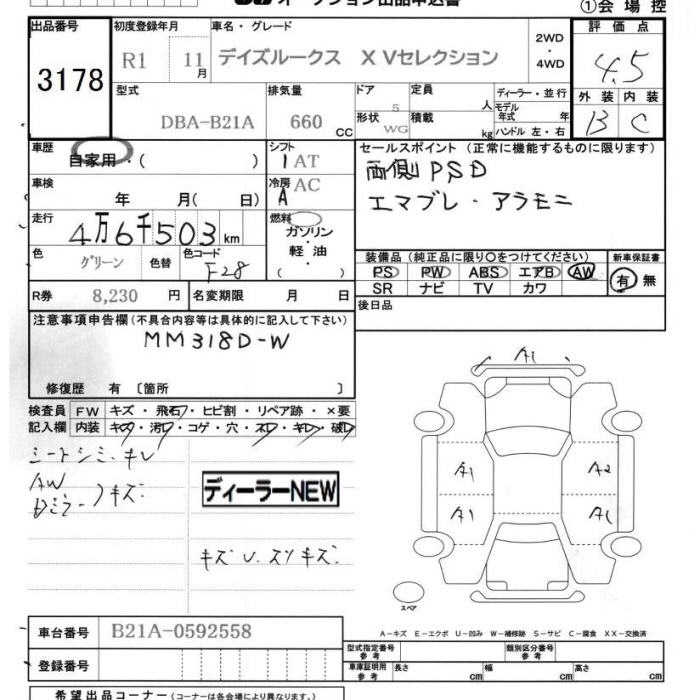 オークション出品申込書
①会場控
出品番号
3178
初度登録年月
R1 11月
車名・グレード
デイズルークス X Vセレクション
2WD
・
4WD
評価点
4.5
外装 内装
B C
型式
DBA-B21A
排気量
660 CC
ドア
5
形状
WG
定員
人
積載
kg
ディーラー・並行
モデル
年式 年
ハンドル 左・右
車歴
自家用・( )
シフト
I AT
冷房
A AC
車検
年 月( 日)
走行
4万6千503km
燃料
ガソリン
・
軽・油
( )
色
グリーン
色替
色コード
F28
R券 8,230 円
名変期限 月 日
セールスポイント (正常に機能するものに限ります)
両側PSD
エマブレ・アラモニ
装備品 (純正品に限り○をつけてください)
PS PW ABS エアB AW
SR ナビ TV カワ
新車保証書
有 無
後日品
注意事項申告欄(不具合内容等は具体的に記入して下さい)
MM318D-W
修復歴 有 〔箇所 〕
検査員
記入欄
FW キズ・飛石・ヒビ割・リペア跡・×要
内装 キタ・汚レ・コゲ・穴・スレ・キレ・破レ
シートシミ・キレ
AW
Dミラー)キズ
ディーラーNEW
キズ U. スリキズ
A1
A1 A2
A1 A1
スペア
A-キズ E-エクボ U-凹み W-補修跡 S-サビ C-腐食 XX-交換済
車台番号 B21A-0592558
登録番号
型式指定番号
参考
類別区分番号
参考
車庫証明用
参考
長さ cm 幅 cm 高さ cm
希望出品コーナー (コーナーは各会場により異なります)